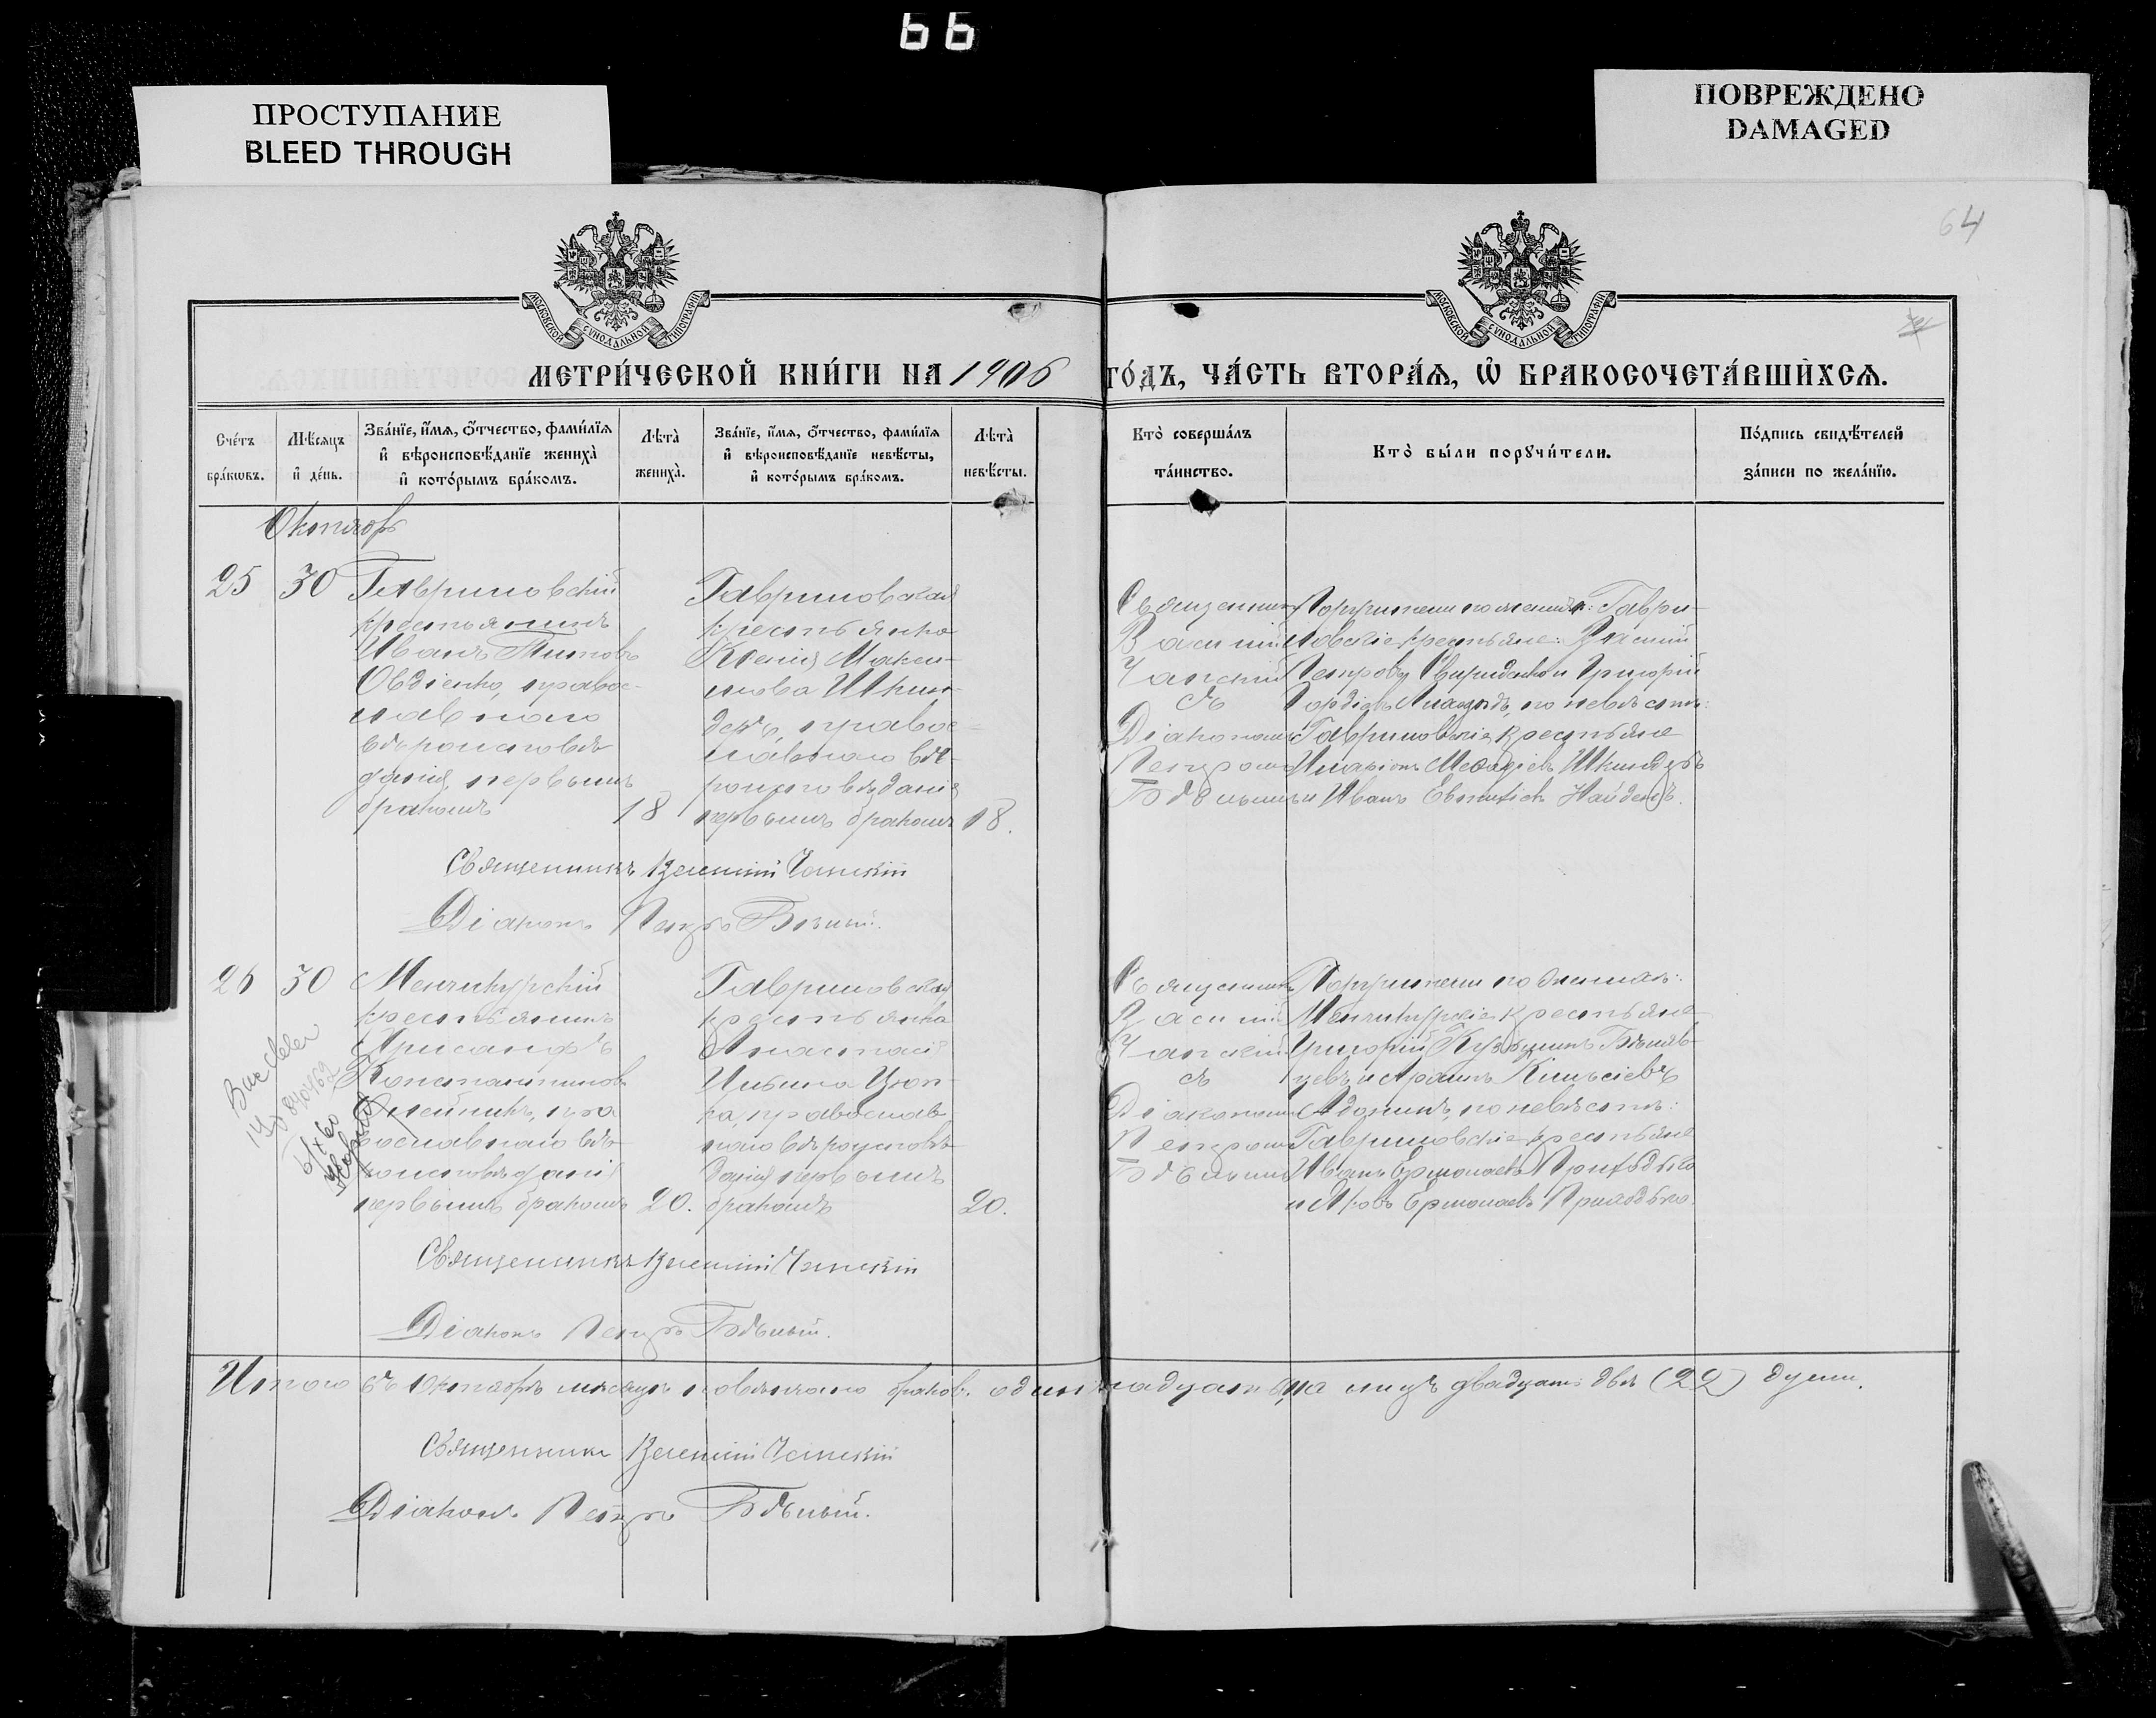 66
ПРОСТУПАНИЕ
BLEED THROUGH
ПОВРЕЖДЕНО
DAMAGED
64
МОСКОВСКОЙ СѴНОДАЛЬНОЙ ТИПОГРАФІИ
МОСКОВСКОЙ СѴНОДАЛЬНОЙ ТИПОГРАФІИ
МЕТРИ́ЧЕСКОЙ КНИ́ГИ НА 1906
ГО́ДЪ, ЧА́СТЬ ВТОРА́Ѧ, Ѡ҆ БРАКОСОЧЕТА́ВШИХСѦ.
Сче́тъ
бра́кѡвъ.
Мѣ́сяцъ
и҆ де́нь.
Зва́нїе, и҆́мѧ, ѻ҆́тчество, фами́лїѧ
и҆ вѣроисповѣ́данїе жениха̀
и҆ кото́рымъ бра́комъ.
Лѣта̀
жениха̀.
Зва́нїе, и҆́мѧ, ѻ҆́тчество, фами́лїѧ
и҆ вѣроисповѣ́данїе невѣ́сты,
и҆ кото́рымъ бра́комъ.
Лѣта̀
невѣ́сты.
Кто̀ соверша́лъ
та́инство.
Кто̀ бы́ли порꙋчи́тели.
По́дпись свидѣ́телей
за́писи по жела́нїю.
Октябрь
25
30
Гавриловскій
крестьянинъ
Иванъ Титовъ
Овдіенко, правос-
лавнаго
вѣроисповѣ
данія, первымъ
бракомъ
18
Гавриловская
крестьянка
Ксенія Макси-
мова Шкин-
деръ, правос-
лавнаго вѣ-
роисповѣданія
первымъ бракомъ
18.
Священникъ
Василій
Чапскій
съ
Діакономъ
Петромъ
Бѣлымъ
Поручители по женихѣ: Гаври-
ловскіе крестьяне: Василій
Петровъ Свириденко и Григорій
Гордіевъ по невѣстѣ:
Гавриловскіе крестьяне
Иларіонъ Меѳодіевъ Шкиндеръ
и Иванъ Евстафіевъ Найденъ.
Священникъ Василій Чапскій
Діаконъ Петръ Бѣлый.
26
30
Менчикурскій
крестьянинъ
Хрисанфъ
Константиновъ
Олейникъ, пра
вославнаго вѣ-
роисповѣданія
первымъ бракомъ
20.
Гавриловская
крестьянка
Анастасія
Ильина Цюп-
ка, православ-
наго вѣроисповѣ-
данія первымъ
бракомъ
20.
Священникъ
Василій
Чапскій
съ
Діакономъ
Петромъ
Бѣлымъ
Поручители по женихѣ:
Менчикурскіе крестьяне
Григорій Кузьминъ
по невѣстѣ:
Гавриловскіе крестьяне
Иванъ Ермолаевъ Приходько
и Яковъ Ермолаевъ Приходько.
Священникъ Василій Чапскій
Діаконъ Петръ Бѣлый.
Итого въ Октябрѣ мѣсяцѣ повѣнчано браковъ одиннадцать, а лицъ двадцать двѣ (22) души.
Священникъ Василій Чапскій
Діаконъ Петръ Бѣлый.